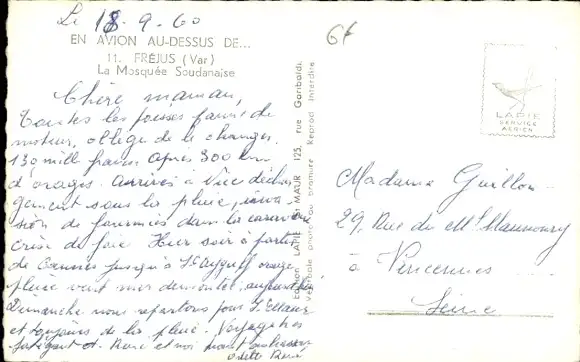 Le 18-9-60
64
EN AVION AU-DESSUS DE...
11. FRÉJUS (Var)
La Mosquée Soudanaise
Chère maman,
Toutes les pousses
moteur, obligé de le changer.
130 mille francs. Après 300 km
d'orages. Arrivés à Nice
sous la pluie,
de fourmis dans la caravane
crise de foie Hier soir à partir
de Cannes jusqu'à St orage
pluie vent mer démontée, aujourd'hui
Dimanche nous repartons pour
et toujours de la pluie. Voyage très
fatigant. et moi
Edition LAPIE ST MAUR 125, rue Garibaldi.
Véritable photo au bromure Reprod Interdite
LAPIE
SERVICE
AÉRIEN
Madame Guillon
29, Rue du Mal Maunoury
à Vincennes
Seine